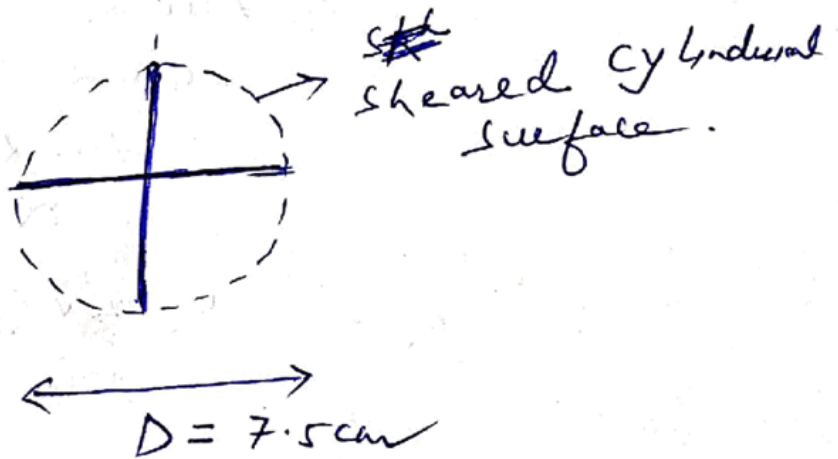 sheared cylindrical
surface.
D = 7.5cm